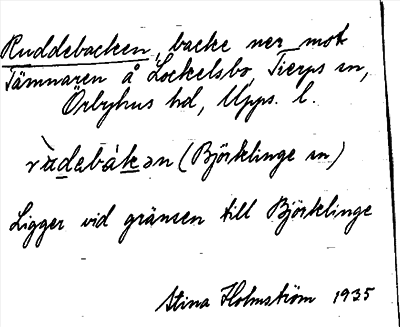 Ruddebacken, backe ner mot
Tämnaren å Lockelsbo, Tierps sn,
Örbyhus hd, Upps. l.
(Björklinge sn)
Ligger vid gränsen till Björklinge
Stina Holmström 1935